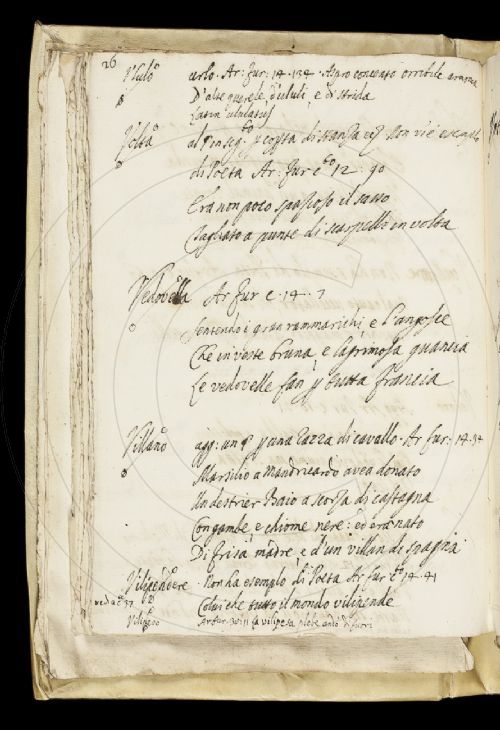 26
Ululo urlo. Ar: fur: 14. 134. Aspro concento orribile armonia
D'alte querele, d'ululi, e di strida
Latin ululatus
Volta al 4 in seg.to p copsta di stanza
di Poeta Ar: fur c.to 12: 90
Era non poco spazioso il sasso
Tagliato a punte di scarpello in volta
Vedovella Ar fur c. 14. 7
Sentendo i gran rammarichi, e l'angosce
Che in veste bruna, e lagrimosa guancia
Le vedovelle fan p tutta Francia
Villano agg: un una razza di cavallo. Ar fur: 14. 34
Marsilio a Mandricardo avea donato
Un destrier Baio a scorza di castagna
Con gambe, e chiome nere: ed era nato
Di frisa madre, e d'un villan di spagna
Vilipendere. Non ha esempio di Poeta Ar fur c.to 14. 41
Colui che tutto il mondo vilipende
Vilipeso Ar fur. la vilipesa plebe